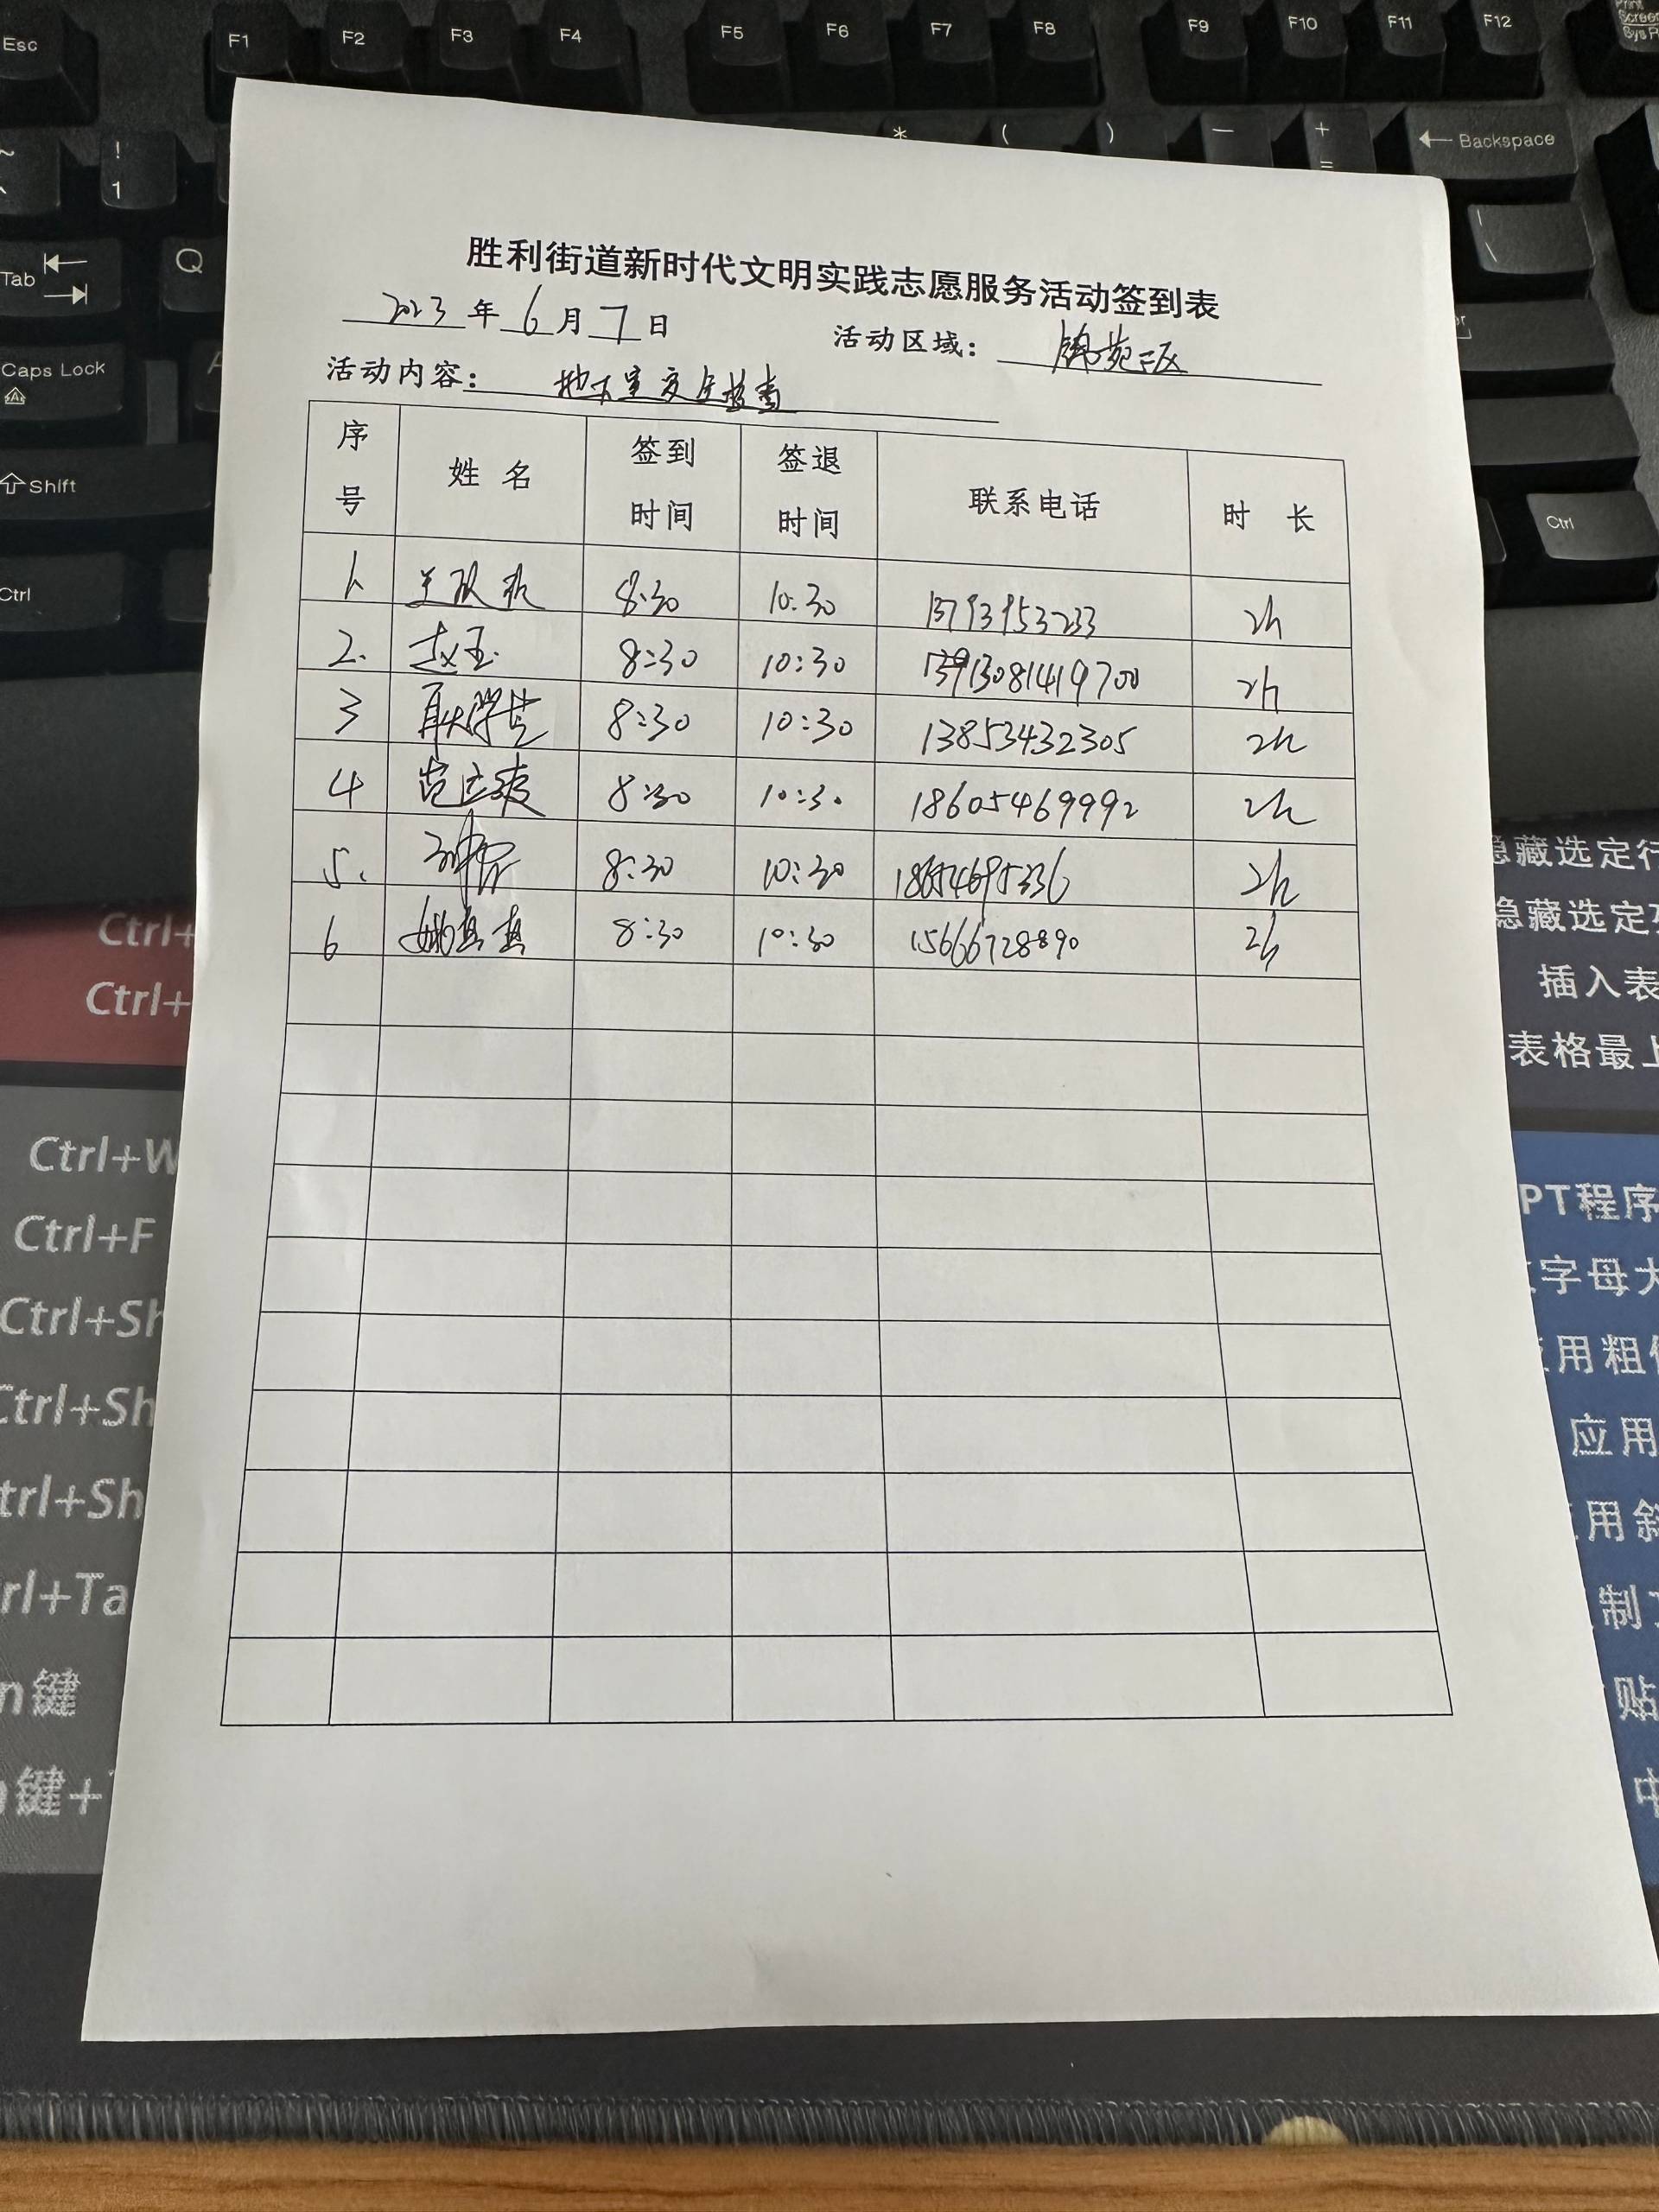 Esc F1 F2 F3 F4 F5 F6 F7 F8 F9 F10 F11 F12
! 1 * ( ) — + = ← Backspace
Tab Q
Caps Lock
Shift
Ctrl
Ctrl
胜利街道新时代文明实践志愿服务活动签到表
2023 年 6 月 7 日 活动区域: 锦苑二区
活动内容: 地下室安全检查
序号 姓 名 签到时间 签退时间 联系电话 时 长
1. 8:30 10:30 13793953233 2h
2. 赵玉 8:30 10:30 2h
3 耿学芸 8:30 10:30 13853432305 2h
4 范立波 8:30 10:30 18605469992 2h
5. 8:30 10:30 18654695336 2h
6 姚真真 8:30 10:30 15666728890 2h
隐藏选定行
隐藏选定
插入表
表格最上
Ctrl+
Ctrl+
Ctrl+W
Ctrl+F
Ctrl+Sh
Ctrl+Sh
trl+Sh
rl+Ta
n键
键+
PT程序
字母大
用粗
应用
用斜
制
贴